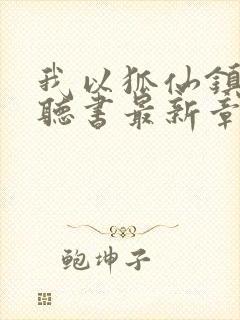 我以狐仙镇
聽書最新章
鲍坤子